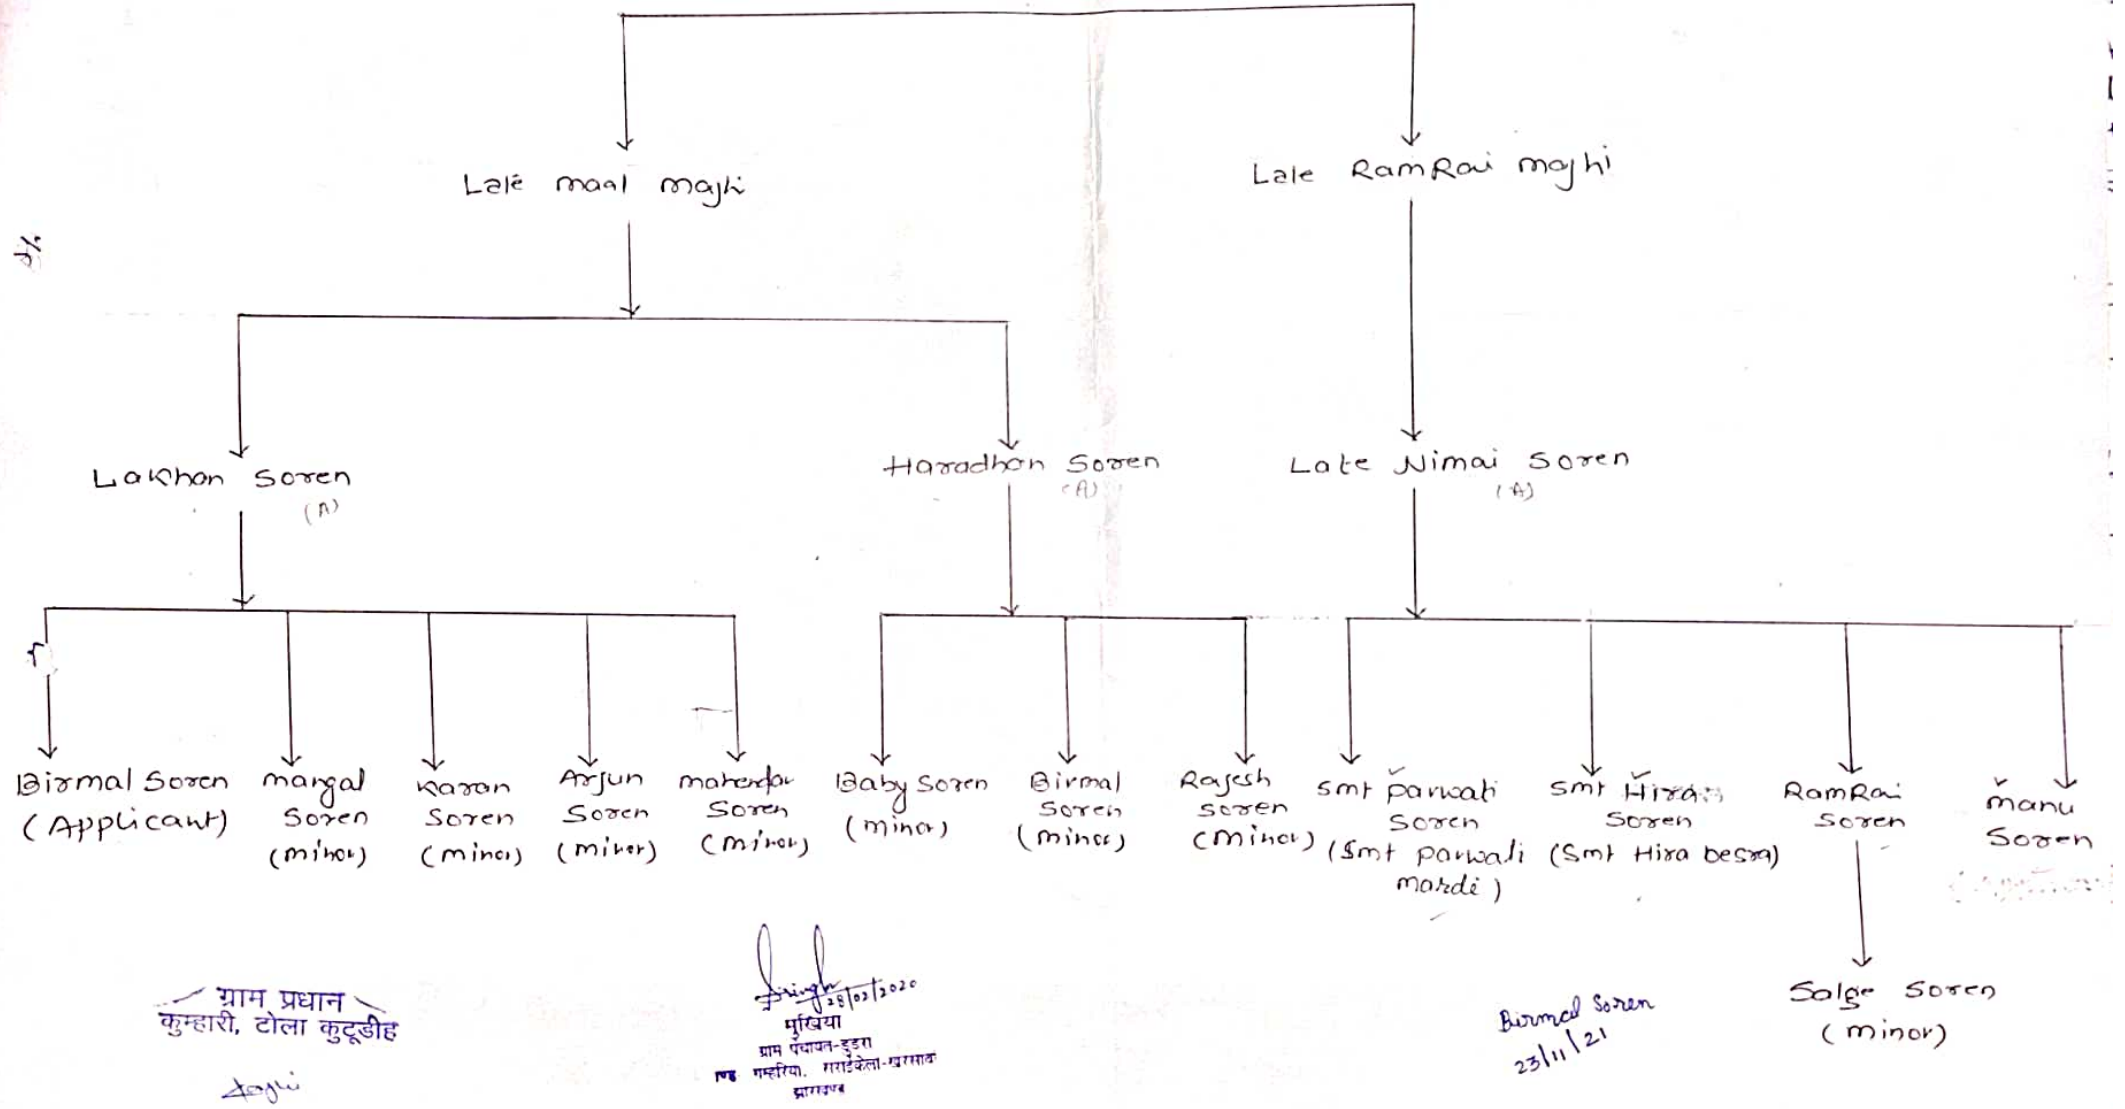 Late maal majhi
Late RamRai majhi
Lakhan Soren
(A)
Haradhan Soren
(A)
Late Nimai Soren
(A)
Birmal Soren
(Applicant)
mangal
Soren
(minor)
Karan
Soren
(minor)
Arjun
Soren
(minor)
mahendar
Soren
(minor)
Baby Soren
(minor)
Birmal
Soren
(minor)
Rajesh
Soren
(minor)
Smt Parwati
Soren
(Smt parwati
mardi)
Smt Hira
Soren
(Smt Hira besra)
RamRai
Soren
manu
Soren
Salge Soren
(minor)
ग्राम प्रधान
कुम्हारी, टोला कुटूडीह
28/02/2020
मुखिया
ग्राम पंचायत-डुडरा
गम्हरिया, सराईकेला-खरसावां
झारखण्ड
Birmal Soren
23/11/21